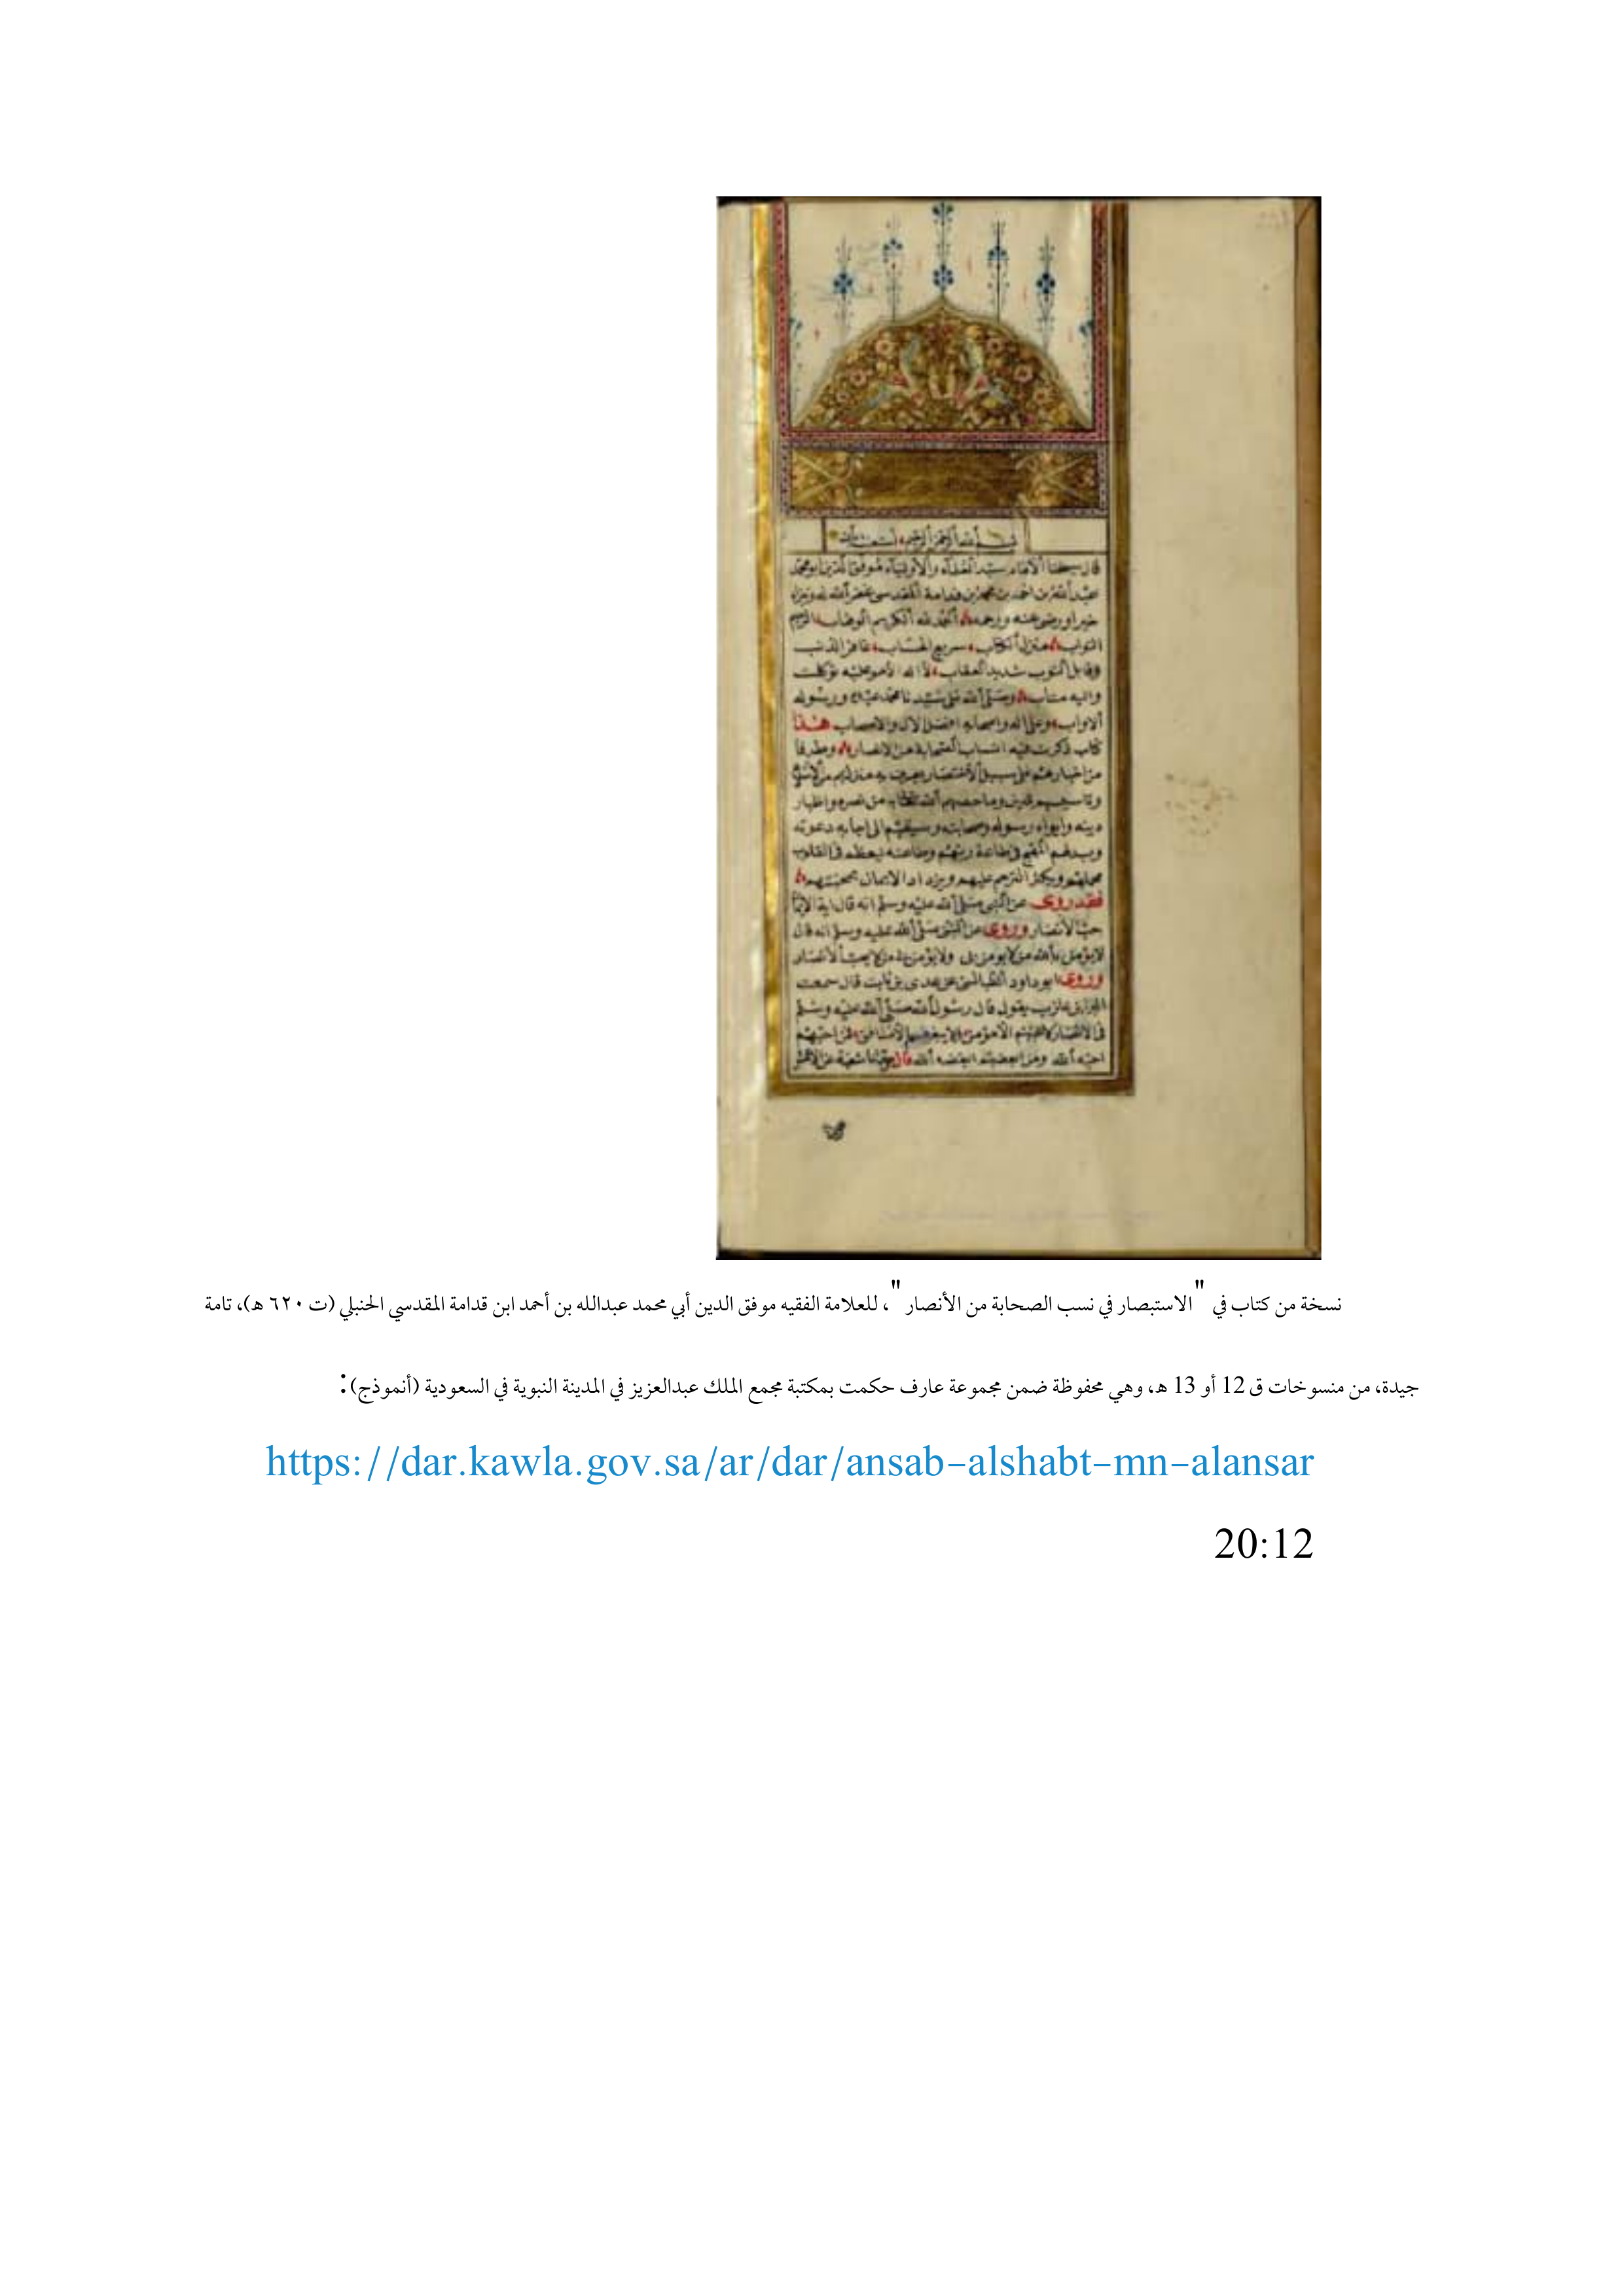 بسم الله الرحمن الرحيم
قال شيخنا الامام سيد العلماء والاولياء موفق الدين ابو محمد
عبد الله بن احمد بن محمد بن قدامة المقدسي غفر الله له وجزاه
خيرا ورضي عنه ورحمه الحمد لله الكريم الوهاب الرحيم
التواب منزل الكتاب سريع الحساب غافر الذنب
وقابل التوب شديد العقاب لا اله الا هو عليه توكلت
واليه متاب وصلى الله على سيدنا محمد عبده ورسوله
الاواب وعلى اله واصحابه افضل الال والاصحاب هذا
كتاب ذكرت فيه انساب الصحابة من الانصار وطرفا
من اخبارهم على سبيل الاختصار يعرف به منازلهم من الاسلام
وتاسيسهم للدين وما خصهم الله تعالى به من نصره واظهار
دينه وايواء رسوله وصحابته وسبقهم الى اجابة دعوته
في طاعة ربهم وطاعته ليعظم في القلوب
محلهم ويكثر الترحم عليهم ويزداد الايمان بمحبتهم
فقد روى عن النبي صلى الله عليه وسلم انه قال اية الايمان
حب الانصار وروى عن النبي صلى الله عليه وسلم انه قال
لا يؤمن بالله من لا يؤمن بي ولا يؤمن بي من لا يحب الانصار
وروى ابو داود الطيالسي عن عدى بن ثابت قال سمعت
البرا بن عازب يقول قال رسول الله صلى الله عليه وسلم
في الانصار لا يحبهم الا مؤمن ولا يبغضهم الا منافق من احبهم
احبه الله ومن ابغضهم ابغضه الله قال شعبة عن الاعمش
نسخة من كتاب في "الاستبصار في نسب الصحابة من الأنصار"، للعلامة الفقيه موفق الدين أبي محمد عبدالله بن أحمد ابن قدامة المقدسي الحنبلي (ت ٦٢٠ هـ)، تامة
جيدة، من منسوخات ق 12 أو 13 هـ، وهي محفوظة ضمن مجموعة عارف حكمت بمكتبة مجمع الملك عبدالعزيز في المدينة النبوية في السعودية (أنموذج):
https://dar.kawla.gov.sa/ar/dar/ansab-alshabt-mn-alansar
20:12